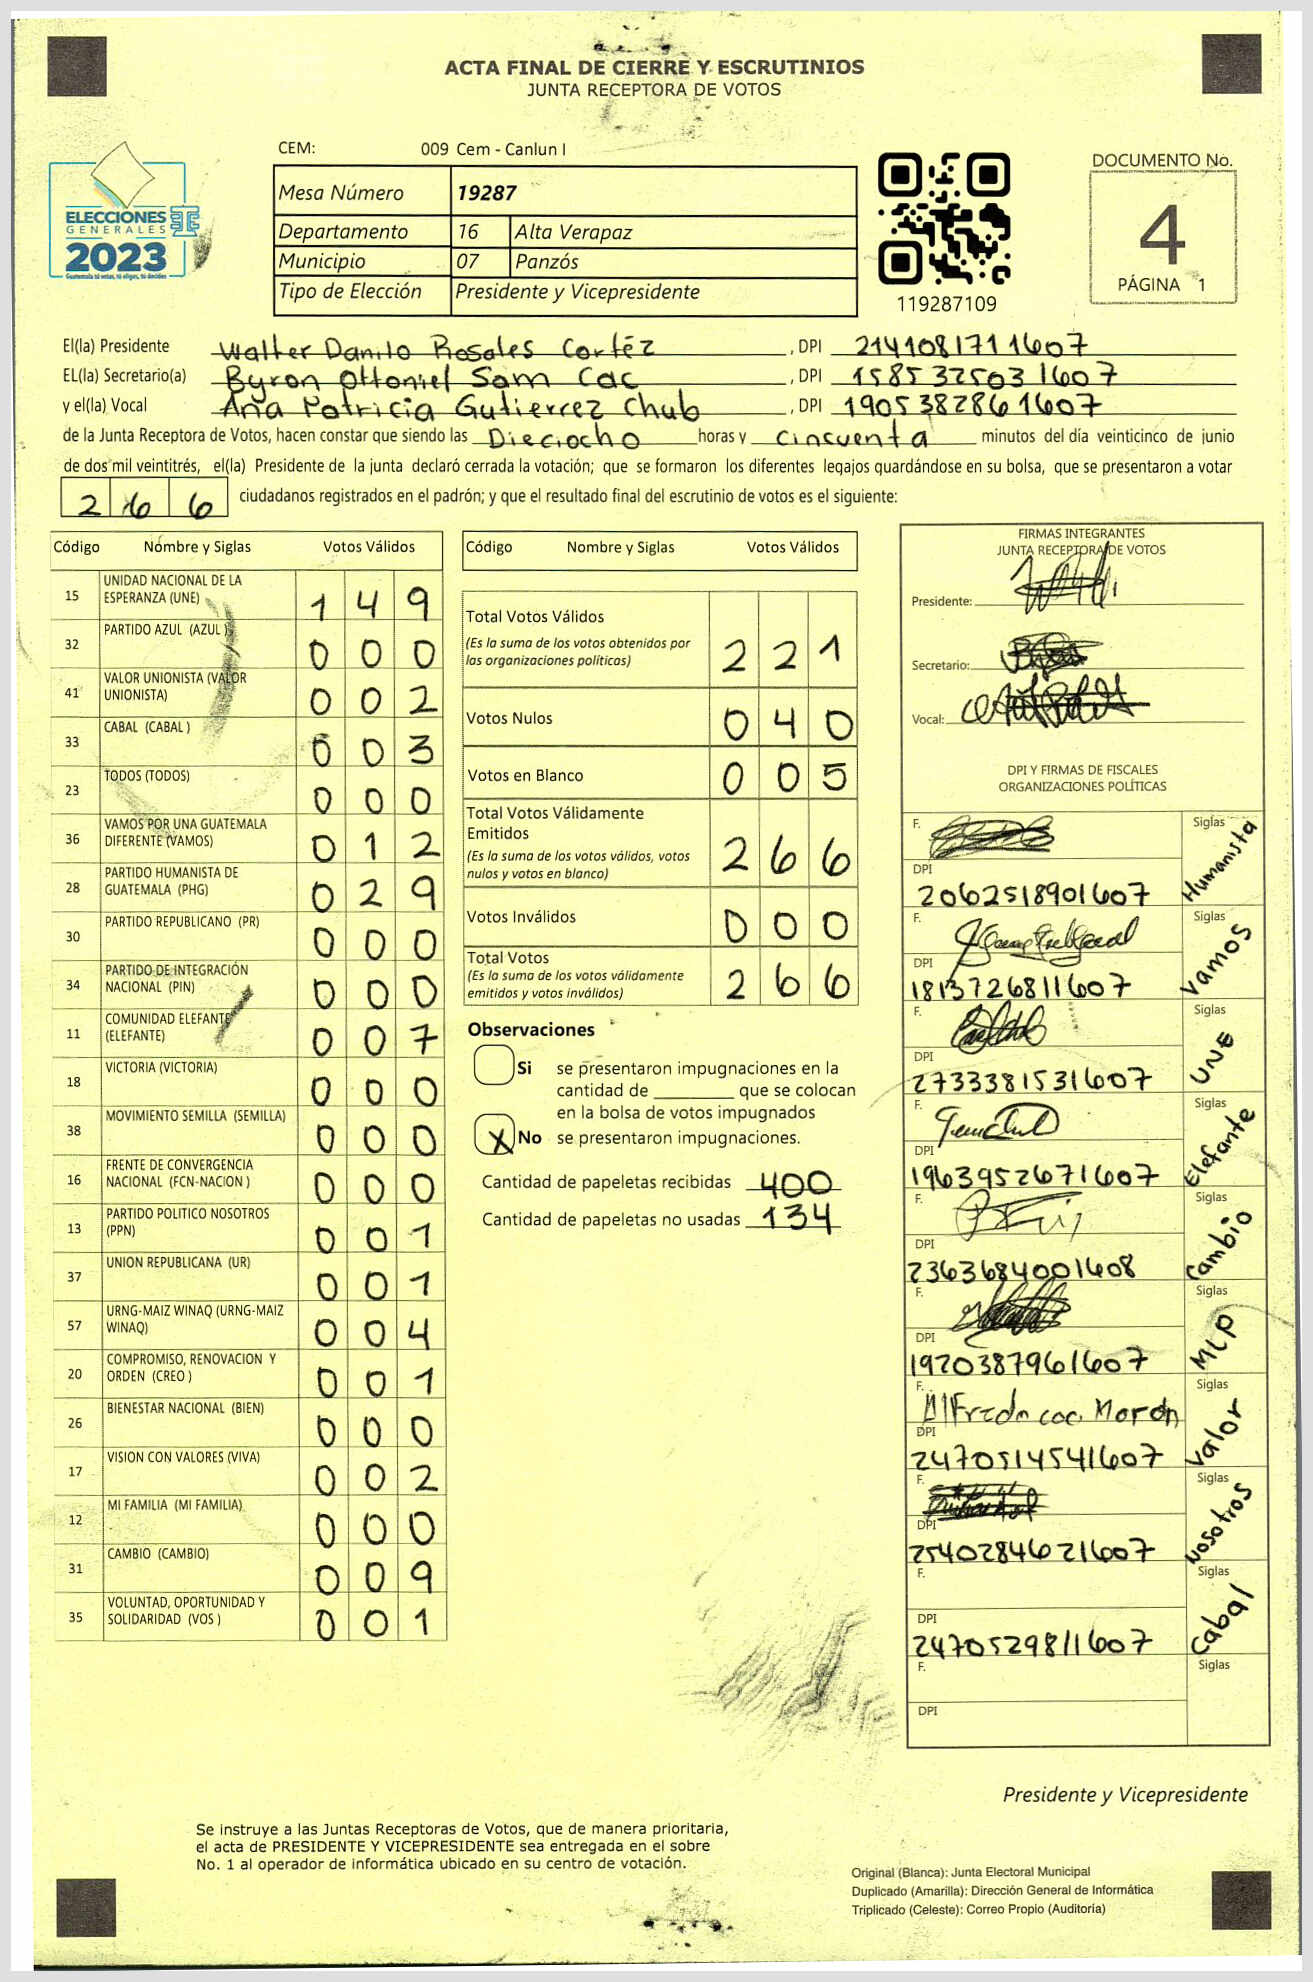 ACTA FINAL DE CIERRE Y ESCRUTINIOS
JUNTA RECEPTORA DE VOTOS
CEM: 009 Cem - Canlun I
ELECCIONES
GENERALES
2023
Guatemala tú votas, tú eliges, tú decides
Mesa Número 19287
Departamento 16 Alta Verapaz
Municipio 07 Panzós
Tipo de Elección Presidente y Vicepresidente
119287109
DOCUMENTO No.
4
PÁGINA 1
El(la) Presidente Walter Danilo Rosales Cortéz , DPI 2141081711607
EL(la) Secretario(a) Byron Ottoniel Sam Cac , DPI 1585325031607
y el(la) Vocal Ana Patricia Gutierrez Chub , DPI 1905382861607
de la Junta Receptora de Votos, hacen constar que siendo las Dieciocho horas y cincuenta minutos del día veinticinco de junio
de dos mil veintitrés, el(la) Presidente de la junta declaró cerrada la votación; que se formaron los diferentes legajos guardándose en su bolsa, que se presentaron a votar
266 ciudadanos registrados en el padrón; y que el resultado final del escrutinio de votos es el siguiente:
Código Nombre y Siglas Votos Válidos
15 UNIDAD NACIONAL DE LA ESPERANZA (UNE) 149
32 PARTIDO AZUL (AZUL ) 000
41 VALOR UNIONISTA (VALOR UNIONISTA) 002
33 CABAL (CABAL ) 003
23 TODOS (TODOS) 000
36 VAMOS POR UNA GUATEMALA DIFERENTE (VAMOS) 012
28 PARTIDO HUMANISTA DE GUATEMALA (PHG) 029
30 PARTIDO REPUBLICANO (PR) 000
34 PARTIDO DE INTEGRACIÓN NACIONAL (PIN) 000
11 COMUNIDAD ELEFANTE (ELEFANTE) 007
18 VICTORIA (VICTORIA) 000
38 MOVIMIENTO SEMILLA (SEMILLA) 000
16 FRENTE DE CONVERGENCIA NACIONAL (FCN-NACION ) 000
13 PARTIDO POLITICO NOSOTROS (PPN) 001
37 UNION REPUBLICANA (UR) 001
57 URNG-MAIZ WINAQ (URNG-MAIZ WINAQ) 004
20 COMPROMISO, RENOVACION Y ORDEN (CREO ) 001
26 BIENESTAR NACIONAL (BIEN) 000
17 VISION CON VALORES (VIVA) 002
12 MI FAMILIA (MI FAMILIA) 000
31 CAMBIO (CAMBIO) 009
35 VOLUNTAD, OPORTUNIDAD Y SOLIDARIDAD (VOS ) 001
Código Nombre y Siglas Votos Válidos
Total Votos Válidos
(Es la suma de los votos obtenidos por
las organizaciones políticas) 221
Votos Nulos 040
Votos en Blanco 005
Total Votos Válidamente
Emitidos
(Es la suma de los votos válidos, votos
nulos y votos en blanco) 266
Votos Inválidos 000
Total Votos
(Es la suma de los votos válidamente
emitidos y votos inválidos) 266
Observaciones
Si se presentaron impugnaciones en la
cantidad de ________ que se colocan
en la bolsa de votos impugnados
X No se presentaron impugnaciones.
Cantidad de papeletas recibidas 400
Cantidad de papeletas no usadas 134
FIRMAS INTEGRANTES
JUNTA RECEPTORA DE VOTOS
Presidente:
Secretario:
Vocal:
DPI Y FIRMAS DE FISCALES
ORGANIZACIONES POLÍTICAS
F. Siglas Humanista
DPI 2062518901607
F. Siglas Vamos
DPI 1813726811607
F. Siglas UNE
DPI 2733381531607
F. Siglas Elefante
DPI 1963952671607
F. Siglas Cambio
DPI 2363684001608
F. Siglas MLP
DPI 1920387961607
F. Alfredo coc Morán Siglas Valor
DPI 2470514541607
F. Siglas Nosotros
DPI 2540284621607
F. Siglas Cabal
DPI 2470529811607
F. Siglas
DPI
Presidente y Vicepresidente
Se instruye a las Juntas Receptoras de Votos, que de manera prioritaria,
el acta de PRESIDENTE Y VICEPRESIDENTE sea entregada en el sobre
No. 1 al operador de informática ubicado en su centro de votación.
Original (Blanca): Junta Electoral Municipal
Duplicado (Amarilla): Dirección General de Informática
Triplicado (Celeste): Correo Propio (Auditoría)